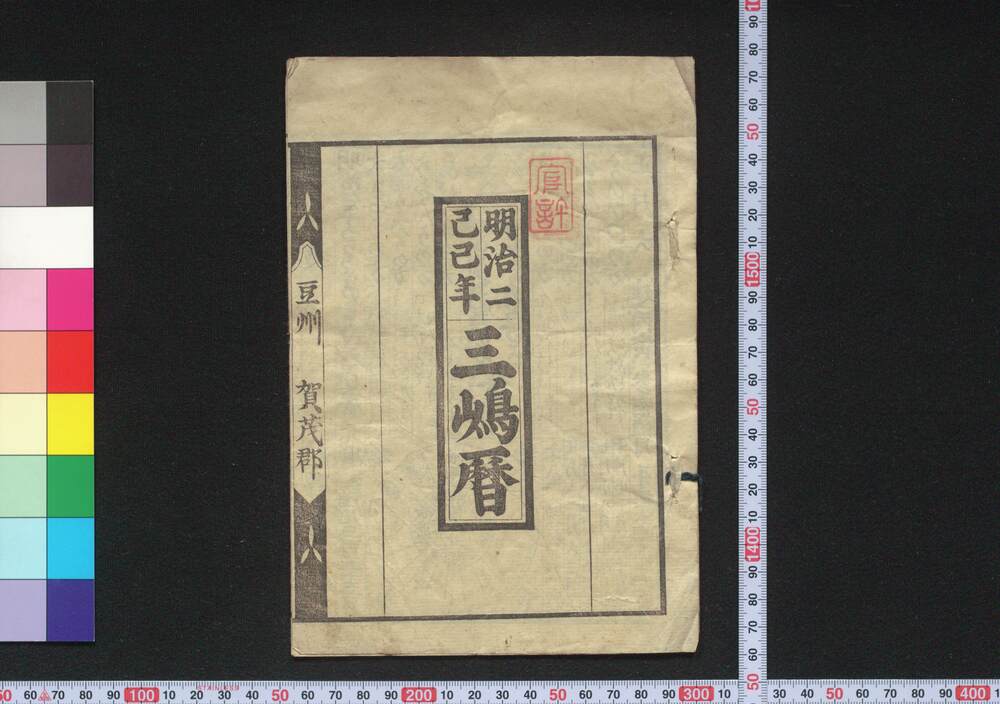 官許
明治二
己巳年
三嶋暦
豆州 賀茂郡
100 10 20 30 40 50 60 70 80 90 200 10 20 30 40 50 60 70 80 90 300 10
20 30 40 50 60 70 80 90 400
90 80 70 60 50 40 30 20 10 1500 90 80 70 60 50 40 30 20 10 1400 90 80 70 60 50
STAINLESS